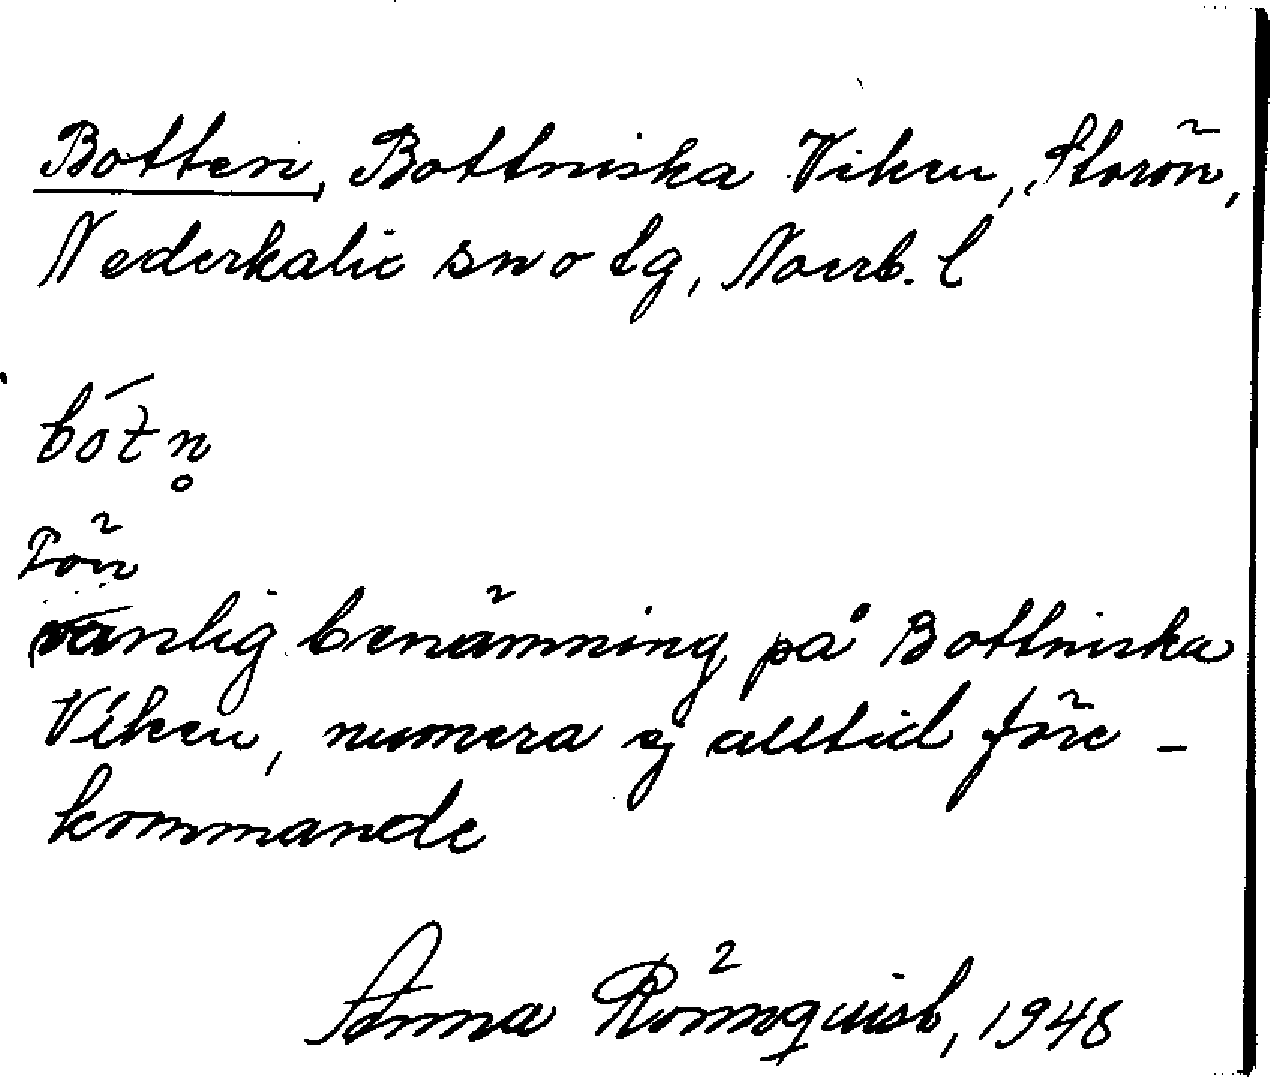 Botten, Bottniska Viken, Storön,
Nederkalix sn o tg, Norrb. l
bótn̥
Tön
vanlig benämning på Bottniska
Viken, numera ej alltid före-
kommande
Anna Rönnqvist, 1948